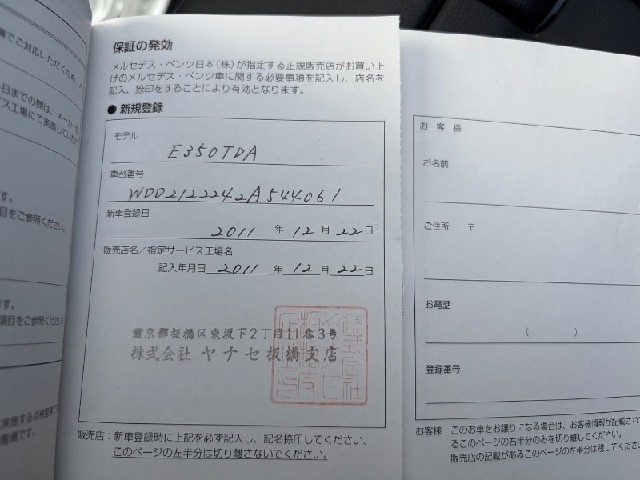 保証の発効
メルセデス・ベンツ日本(株)が指定する正規販売店がお買い上
げのメルセデス・ベンツ車に関する必要事項を記入し、店名を
記入、捺印をすることにより有効となります。
●新規登録
モデル
E350TDA
車台番号
WDD2122242A544061
新車登録日
2011 年 12 月 22 日
販売店名/指定サービス工場名
記入年月日 2011 年 12 月 22 日
東京都板橋区東坂下2丁目11番3号
株式会社 ヤナセ板橋支店
販売店:新車登録時に上記を必ず記入し、記名捺印してください。
このページの左半分は切り離さないでください。
お客様
お名前
ご住所 〒
お電話
( )
登録番号
お客様 このお車をお譲りになる場合は、お客様情報が記載され
るこのページの右半分のみを切り離してください。
販売店の記載があるこのページの左半分は、残してください